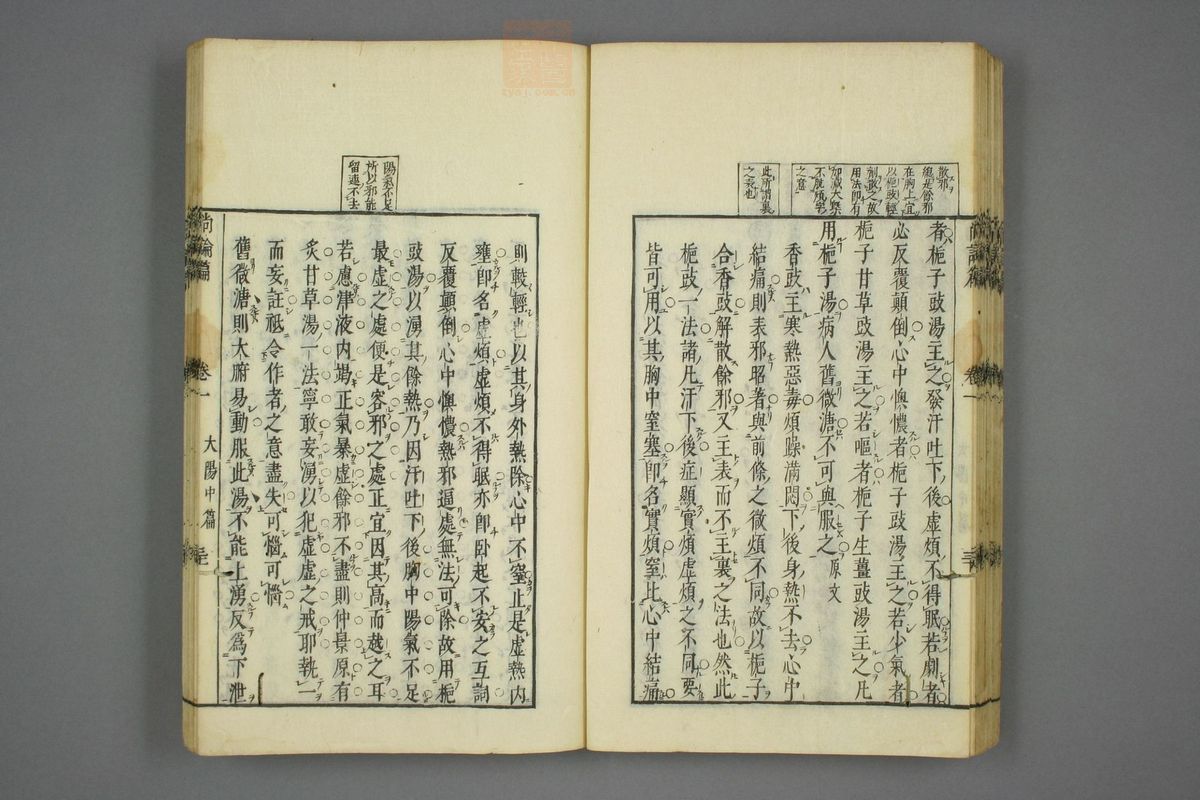 散邪
總是餘邪
在胸上宜
以梔豉輕
劑散之故
用法卽有
加減大槩
不脫梔豉
之意
此所謂裏
之表也
者梔子豉湯主之發汗吐下後虛煩不得眠若劇者
必反覆顛倒心中懊憹者梔子豉湯主之若少氣者
梔子甘草豉湯主之若嘔者梔子生薑豉湯主之凡
用梔子湯病人舊微溏不可與服之原文
香豉主寒熱惡毒煩躁滿悶下後身熱不去心中
結痛則表邪昭著與前條之微煩不同故以梔子
合香豉解散餘邪又主表而不主裏之法也然此
梔豉一法諸凡汗下後症顯實煩虛煩之不同要
皆可用以其胸中窒塞卽名實煩窒比心中結痛
尚論篇
卷一
陽氣不足
所以邪能
留連不去
則較輕也以其身外熱除心中不窒止是虛熱內
壅卽名虛煩虛煩不得眠亦卽臥起不安之互詞
反覆顛倒心中懊憹熱邪逼處無法可除故用梔
豉湯以湧其餘熱乃因汗吐下後胸中陽氣不足
最虛之處便是客邪之處正宜因其高而越之耳
若慮津液內竭正氣暴虛餘邪不盡則仲景原有
炙甘草湯一法寧敢妄湧以犯虛虛之戒耶執一
而妄註祗令作者之意盡失可惱可惱
舊微溏則大腑易動服此湯不能上湧反爲下泄
尚論篇
卷一
太陽中篇
tyoj.com.cn